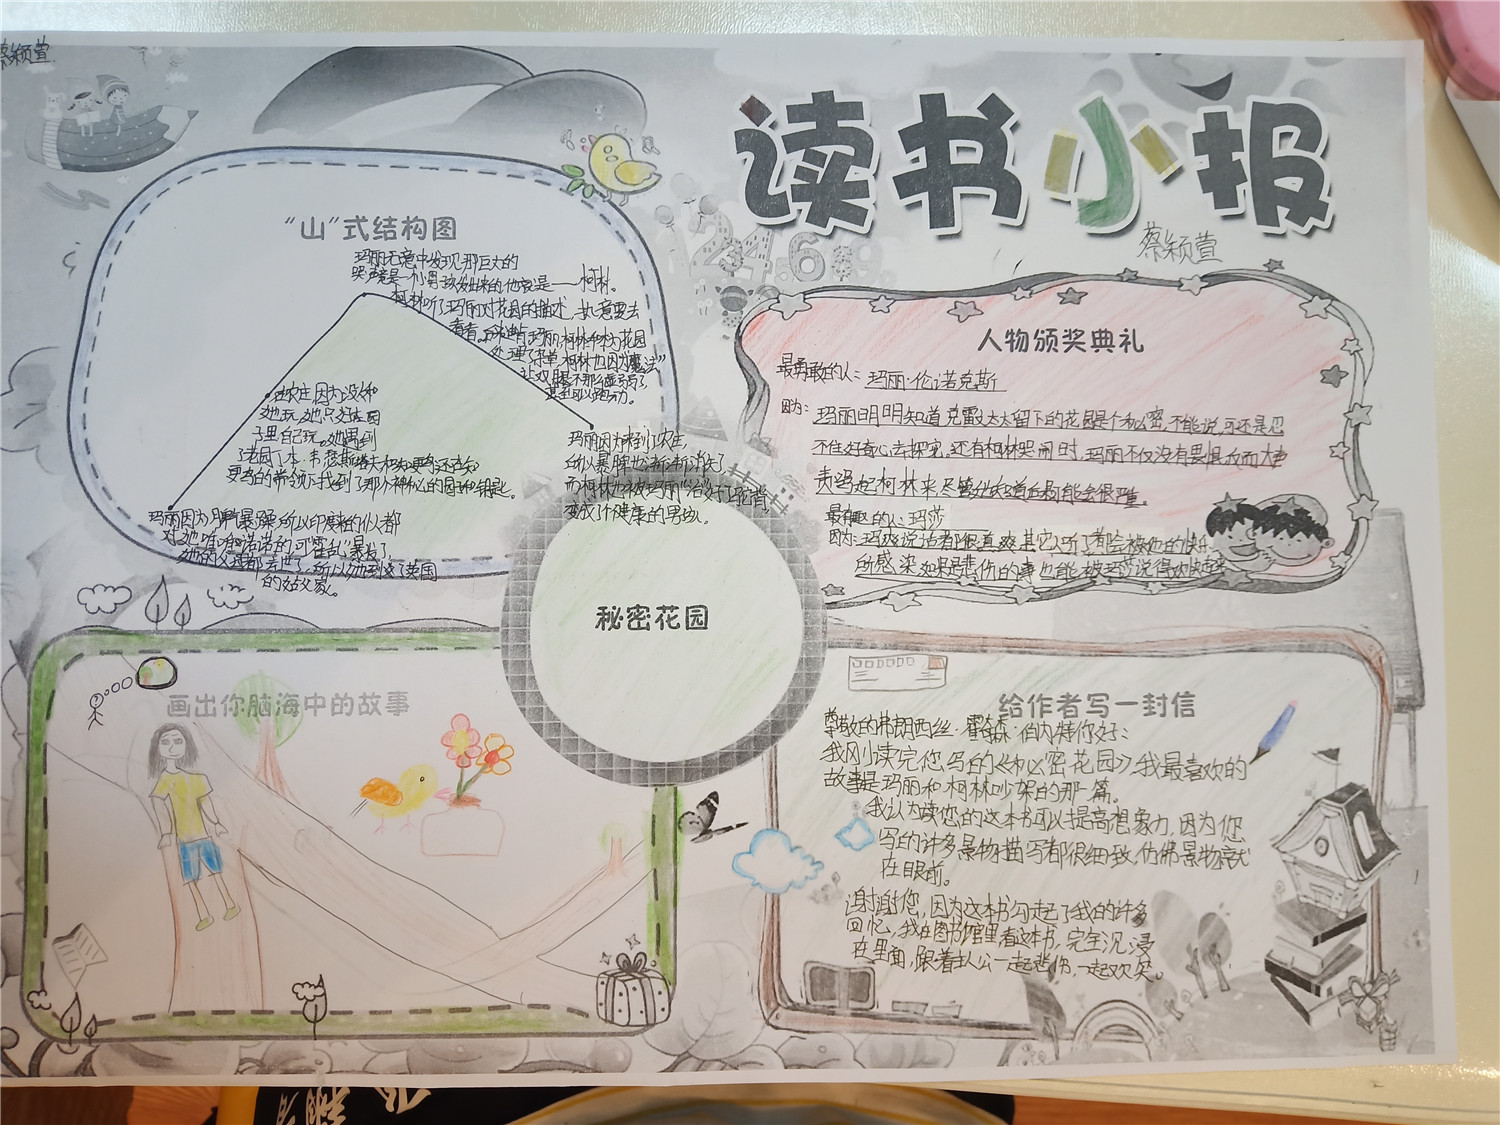 蔡颖萱
读书小报
蔡颖萱
“山”式结构图
玛丽无意中发现那巨大的
哭声竟是一个小男孩发出来的他就是——柯林。
柯林听了玛丽对花园的描述,执意要去
看看。
玛丽,柯林和
柯林也因为“魔法”
在农庄,因为没人和
她玩,她只好在园
子里自己玩。她遇到
了老园丁本·韦瑟斯塔夫和知更鸟还在知
更鸟的带领下找到了那个神秘的园和钥匙。
玛丽因为脾气暴躁所以印度的仆人都
对她唯唯诺诺的,可“霍乱”暴发了
她的父母都去世了,所以她到了英国
的姑父家。
玛丽因为来到了农庄,
所以暴脾也渐渐消失了
而柯林也被玛丽“治”好了驼背
变成了个健康的男孩。
人物颁奖典礼
最勇敢的人:玛丽·伦诺克斯
因为:玛丽明明知道克雷文太太留下的花园是个秘密,不能说,可还是忍
不住好奇心去探究,还有柯林哭闹时,玛丽不仅没有畏惧反而大声
责骂起柯林来,尽管她知道后果可能会很严重。
最有趣的人:玛莎
因为:玛莎说话都很直爽,其它人听了都会被他的快乐
所感染如果是悲伤的事也能被玛莎说得
秘密花园
画出你脑海中的故事
给作者写一封信
尊敬的弗朗西丝·霍奇森·伯内特你好:
我刚读完您写的《秘密花园》,我最喜欢的
故事是玛丽和柯林吵架的那一篇。
我认为读您的这本书可以提高想象力,因为您
写的许多景物描写都很细致,仿佛景物就
在眼前。
谢谢您,因为这本书勾起了我的许多
回忆,我在图书馆里看这本书,完全沉浸
在里面,跟着主人公一起悲伤,一起欢笑。